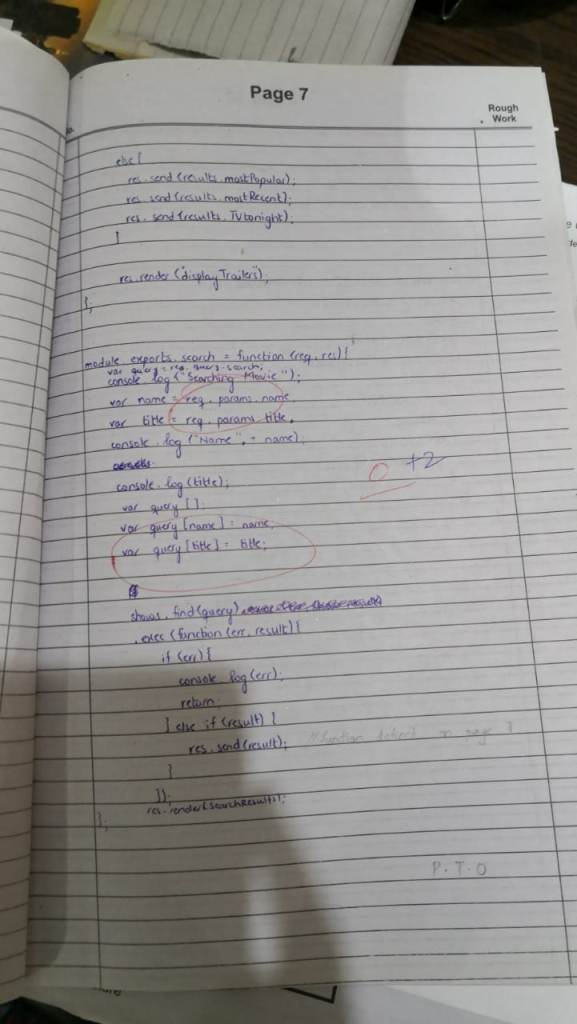 Page 7
Rough
Work
else{
res.send(results.mostPopular);
res.send(results.mostRecent);
res.send(results.TVtonight);
}
res.render("displayTrailers");
};
module exports.search = function(req, res){
var query = req.query.search;
console log("Searching Movie");
var name = req.params.name,
var title = req.params.title,
console.log("Name", = name),
console.log(title);
var query [];
var query [name] = name;
var query [title] = title;
0 +2
shows.find(query)
.exec(function(err, result){
if (err){
console log(err);
return;
} else if(result) {
res.send(result);
//function defined on page 7
}
});
res.render(searchResults);
};
P.T.O